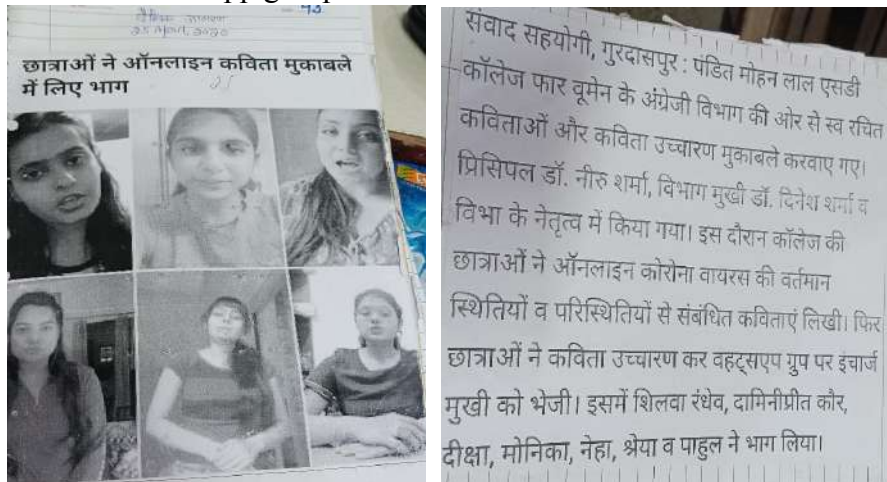 93
दैनिक जागरण
25 April, 2020
छात्राओं ने ऑनलाइन कविता मुकाबले
में लिए भाग
संवाद सहयोगी, गुरदासपुर : पंडित मोहन लाल एसडी
कॉलेज फार वूमेन के अंग्रेजी विभाग की ओर से स्व रचित
कविताओं और कविता उच्चारण मुकाबले करवाए गए।
प्रिसिपल डॉ. नीरु शर्मा, विभाग मुखी डॉ. दिनेश शर्मा व
विभा के नेतृत्व में किया गया। इस दौरान कॉलेज की
छात्राओं ने ऑनलाइन कोरोना वायरस की वर्तमान
स्थितियों व परिस्थितियों से संबंधित कविताएं लिखी। फिर
छात्राओं ने कविता उच्चारण कर वहट्सएप ग्रुप पर इंचार्ज
मुखी को भेजी। इसमें शिलवा रंधेव, दामिनीप्रीत कौर,
दीक्षा, मोनिका, नेहा, श्रेया व पाहुल ने भाग लिया।